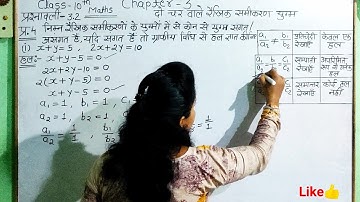 Class-10th Maths Chapter-3
प्रश्नावली-3.2 दो चर वाले रैखिक समीकरण युग्म
प्र.4 निम्न रैखिक समीकरणों के युग्मों में से कौन से युग्म संगत/
असंगत है, यदि संगत हैं तो ग्राफीय विधि से हल ज्ञात
(i) x+y=5, 2x+2y=10
हल: x+y-5=0
2x+2y-10=0
2(x+y-5)=0
x+y-5=0
a₁=1, b₁=1, c₁
a₂=1, b₂=1,
a₁/a₂ = 1/1, b₁/b₂ = 1/1
a₁/a₂ ≠ b₁/b₂ रेखाएँ केवल एक हल
a₁/a₂ = b₁/b₂ = c₁/c₂ संपाती रेखाएँ अपरिमित रूप से अनेक हल
समान्तर रेखाएँ कोई हल नहीं
Like